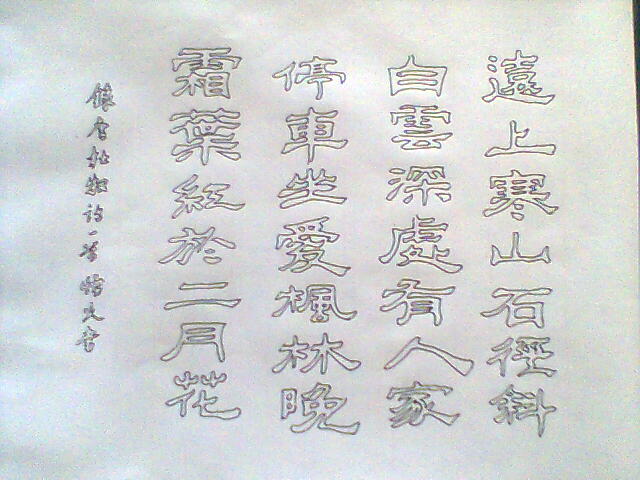 遠上寒山石徑斜
白雲深處有人家
停車坐愛楓林晚
霜葉紅於二月花
錄唐杜牧詩一首